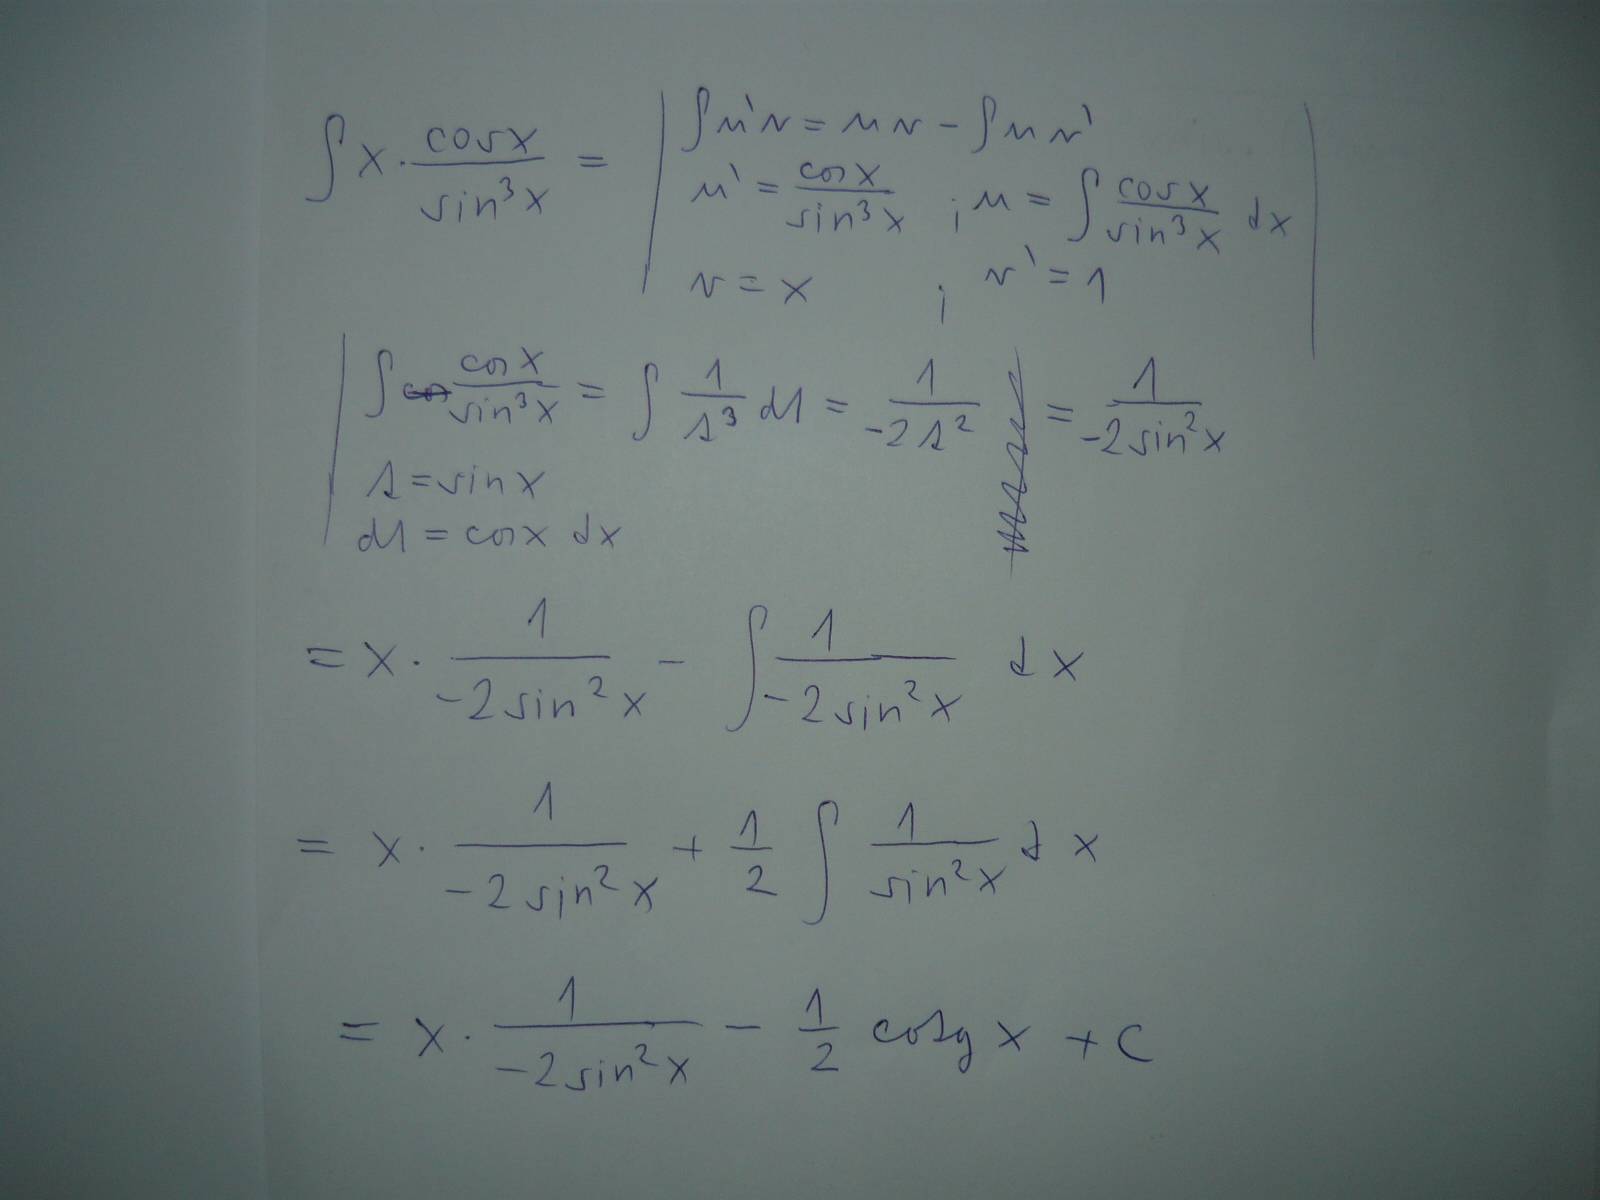 ∫ x · cosx / sin³x = | ∫u'v = uv − ∫uv'
u' = cosx / sin³x ; u = ∫ cosx / sin³x dx
v = x ; v' = 1 |
| ∫ cosx / sin³x = ∫ 1 / t³ dt = 1 / −2t² = 1 / −2sin²x
t = sinx
dt = cosx dx
= x · 1 / −2sin²x − ∫ 1 / −2sin²x dx
= x · 1 / −2sin²x + 1/2 ∫ 1 / sin²x dx
= x · 1 / −2sin²x − 1/2 cotg x + c